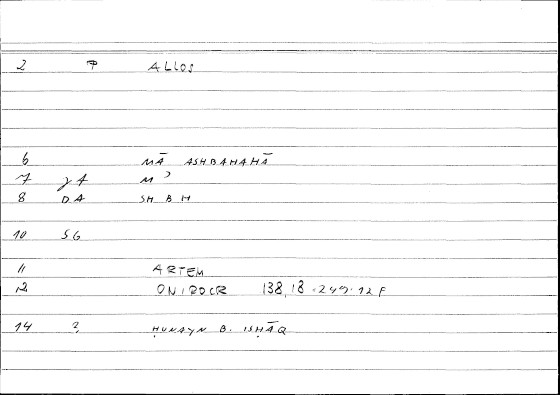 2 P ALLOS
6 MĀ ASHBAHAHĀ
7 yA M ʾ
8 DA SH B H
10 SG
11 ARTEM
12 ONIROCR 138,18 = 249.12 F
14 2, ḤUNAYN B. ISḤĀQ